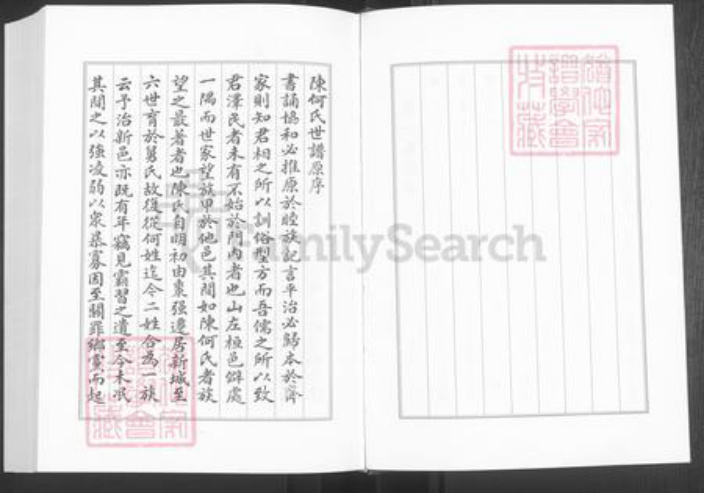 陳何氏世譜原序
書誦協和必推原於睦族記言平治必歸本於齊
家則知君相之所以訓俗型方而吾儒之所以致
君澤民者未有不始於門內者也山左桓邑僻處
一隅而世家望族甲於他邑其間如陳何氏者族
望之最著者也陳氏自明初由棗强遷居新城至
六世育於舅氏故復從何姓迄今二姓合為一族
云予治新邑亦既有年竊見霸習之遺至今未泯
其間之以強凌弱以衆暴寡因至關罪鄉黨而起
FamilySearch